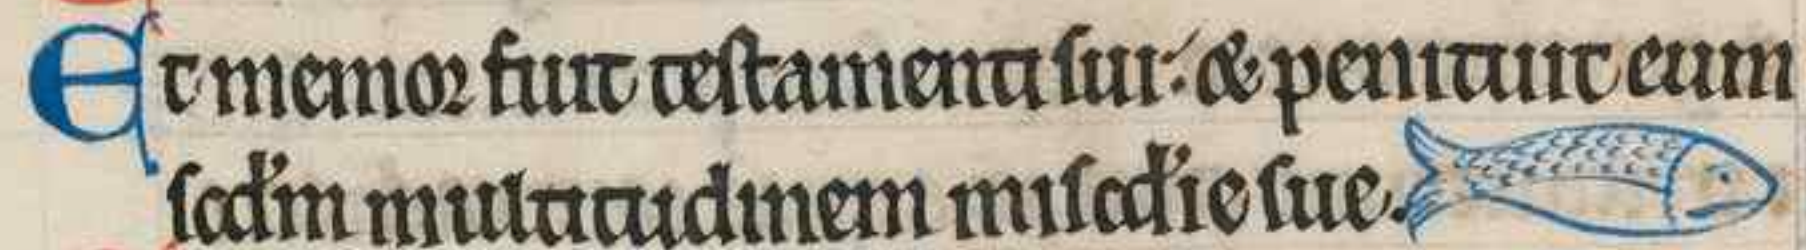 Et memor fuit testamenti sui: & penituit eum
scd'm multitudinem miscd'ie sue.